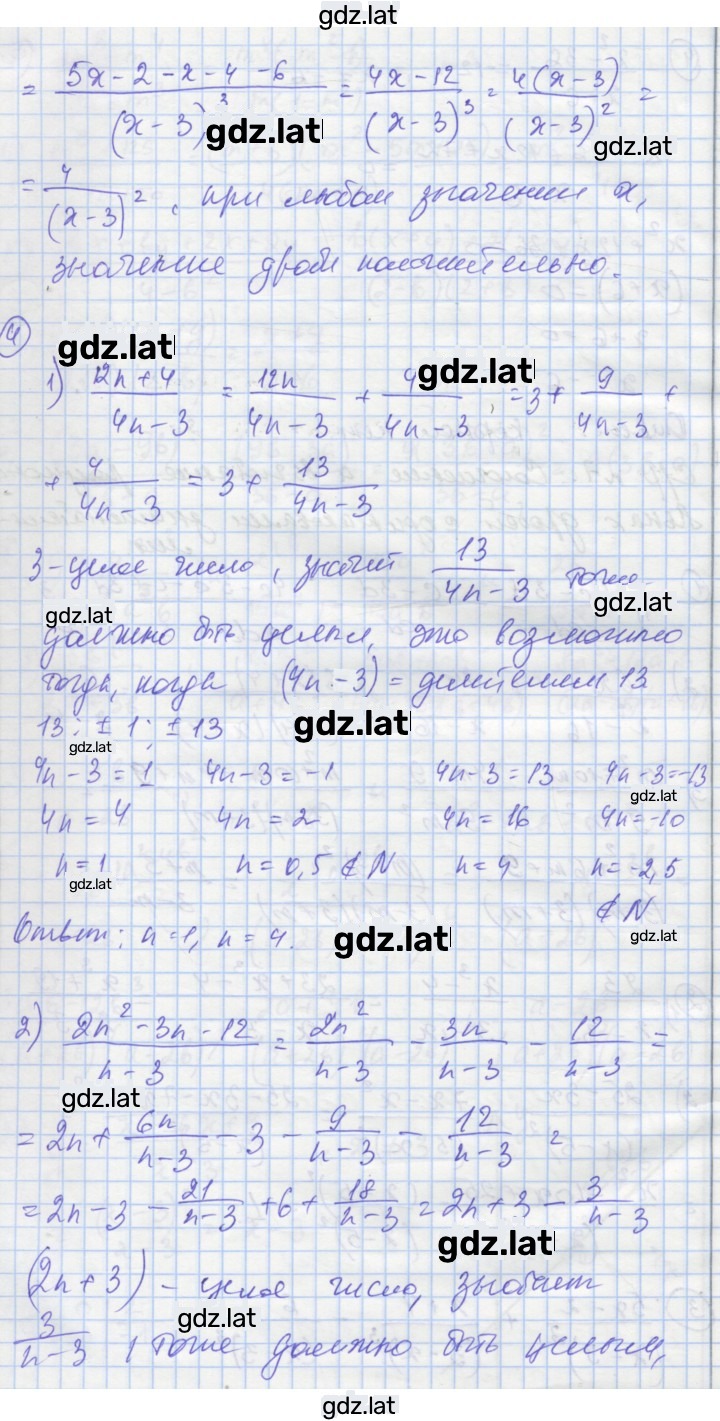 gdz.lat
= (5x - 2 - x - 4 - 6)/(x - 3)^3 = (4x - 12)/(x - 3)^3 = 4(x - 3)/(x - 3)^2 =
gdz.lat
gdz.lat
= 4/(x-3)^2, при любом значении x,
значение дроби положительно.
4
gdz.lat
gdz.lat
1) (12n + 4)/(4n - 3) = 12n/(4n - 3) + 4/(4n - 3) = 3 + 9/(4n - 3) +
+ 4/(4n - 3) = 3 + 13/(4n - 3)
3 - целое число, значит 13/(4n - 3) тоже
gdz.lat
gdz.lat
должно быть целым, это возможно
тогда, когда (4n - 3) = делителем 13
13: ± 1; ± 13
gdz.lat
gdz.lat
4n - 3 = 1 4n - 3 = -1 4n - 3 = 13 4n - 3 = -13
gdz.lat
4n = 4 4n = 2 4n = 16 4n = -10
n = 1 n = 0,5 ∉ N n = 4 n = -2,5
gdz.lat
∉ N
Ответ: n = 1, n = 4.
gdz.lat
gdz.lat
2) (2n^2 - 3n - 12)/(n - 3) = 2n^2/(n - 3) - 3n/(n - 3) - 12/(n - 3) =
gdz.lat
= 2n + 6n/(n - 3) - 3 - 9/(n - 3) - 12/(n - 3) =
= 2n - 3 - 21/(n - 3) + 6 + 18/(n - 3) = 2n + 3 - 3/(n - 3)
gdz.lat
(2n + 3) - целое число, значит
gdz.lat
3/(n - 3), тоже должно быть целым,
gdz.lat